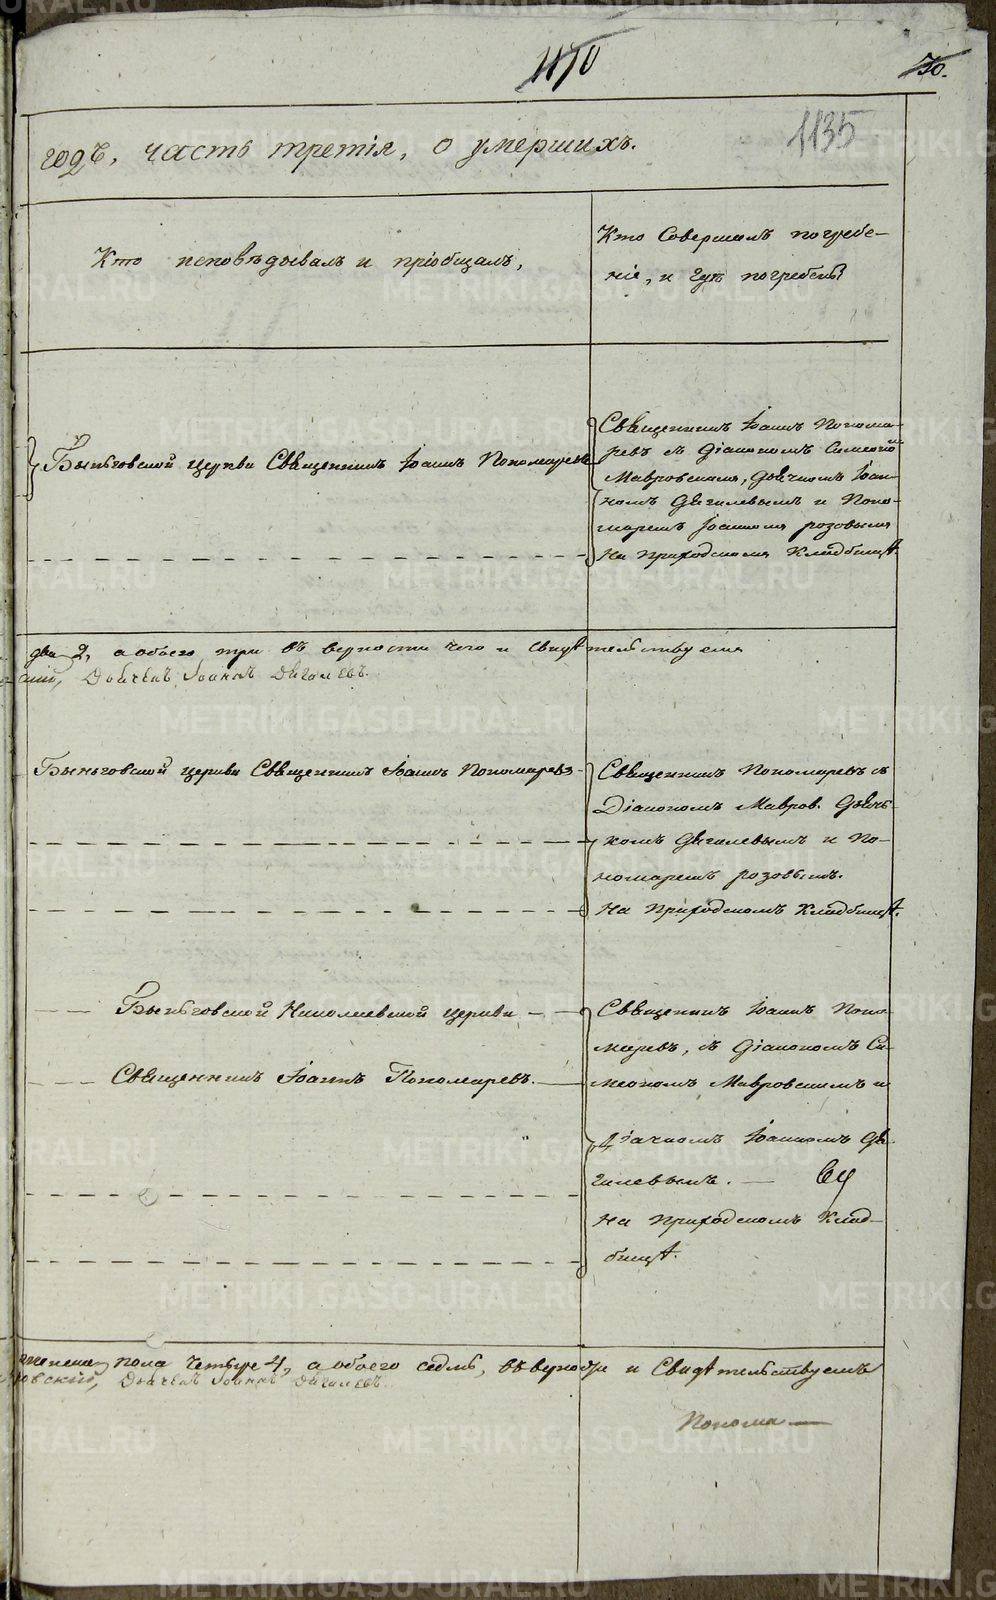 1135
годѣ, часть третія, о умершихъ.
Кто исповѣдывалъ и пріобщалъ,
Кто Совершалъ погребе-
ніе, и гдѣ погребены
Быньговской церкви Священникъ Іоаннъ Пономаревъ
Священникъ Іоаннъ Понома-
ревъ съ Діакономъ Симеономъ
Мавровскимъ, дьячкомъ Іоан-
номъ Дягилевымъ и Поно-
маремъ Іоанномъ розовымъ
На Приходскомъ Кладбищѣ.
два 2, а обоего три въ верности чего и свидѣтельствуемъ
Дьячекъ Іоаннъ Дягилевъ.
Быньговской церкви Священникъ Іоаннъ Пономаревъ
Священникъ Пономаревъ съ
Діакономъ Мавров. Дьяч-
комъ Дягилевымъ и По-
номаремъ розовымъ.
На Приходскомъ Кладбищѣ.
Быньговской Николаевской церкви
Священникъ Іоаннъ Пономаревъ.
Священникъ Іоаннъ Поно-
маревъ, съ Діакономъ Си-
меономъ Мавровскимъ и
Дьячкомъ Іоанномъ Дя-
гилевымъ.
На Приходскомъ Клад-
бищѣ.
женска пола четыре 4, а обоего седмь, въ верности и Свидѣтельствуемъ
ровскій, Дьячекъ Іоаннъ Дягилевъ.
Понома
METRIKI.GASO-URAL.RU